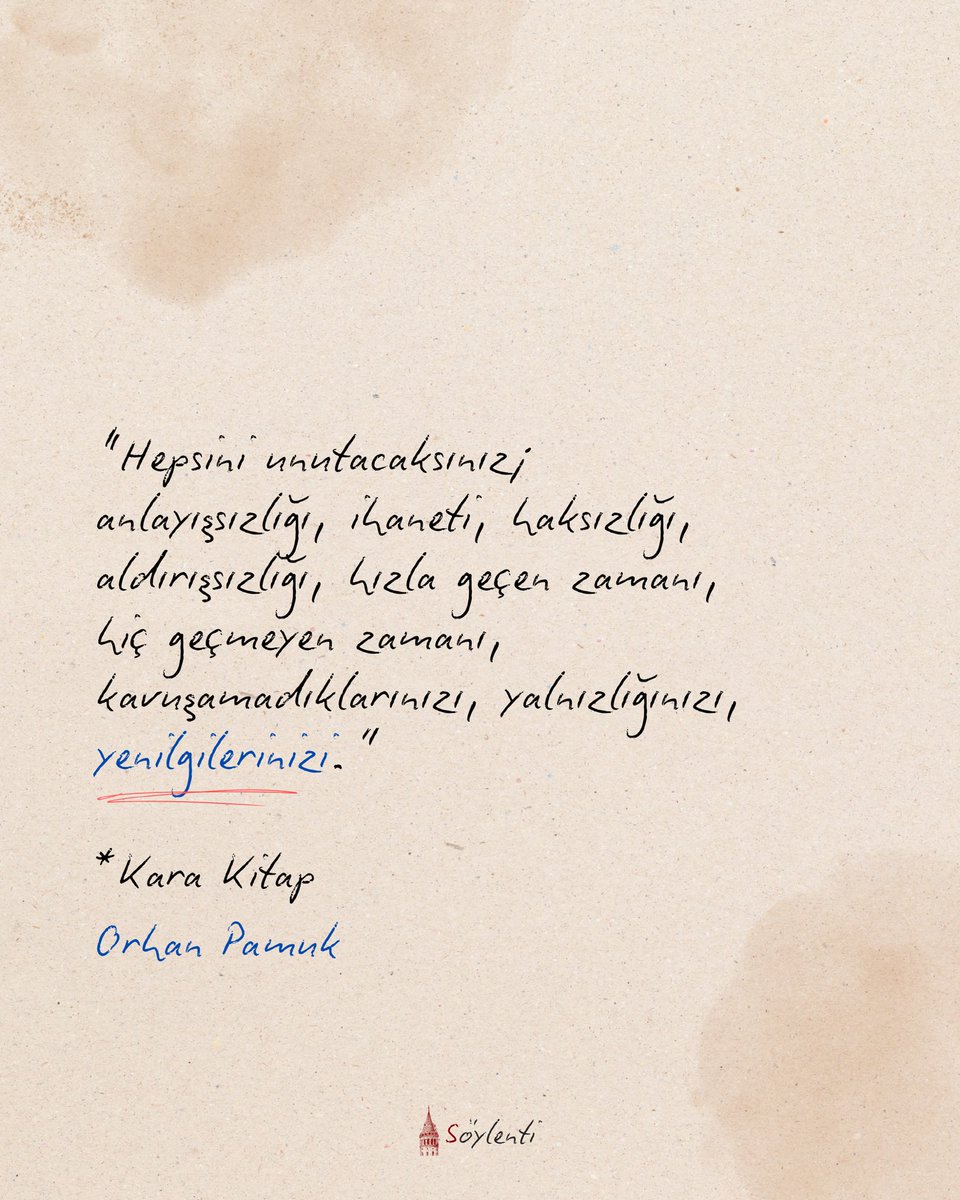 "Hepsini unutacaksınız;
anlayışsızlığı, ihaneti, haksızlığı,
aldırışsızlığı, hızla geçen zamanı,
hiç geçmeyen zamanı,
kavuşamadıklarınızı, yalnızlığınızı,
yenilgilerinizi."
*Kara Kitap
Orhan Pamuk
Söylenti